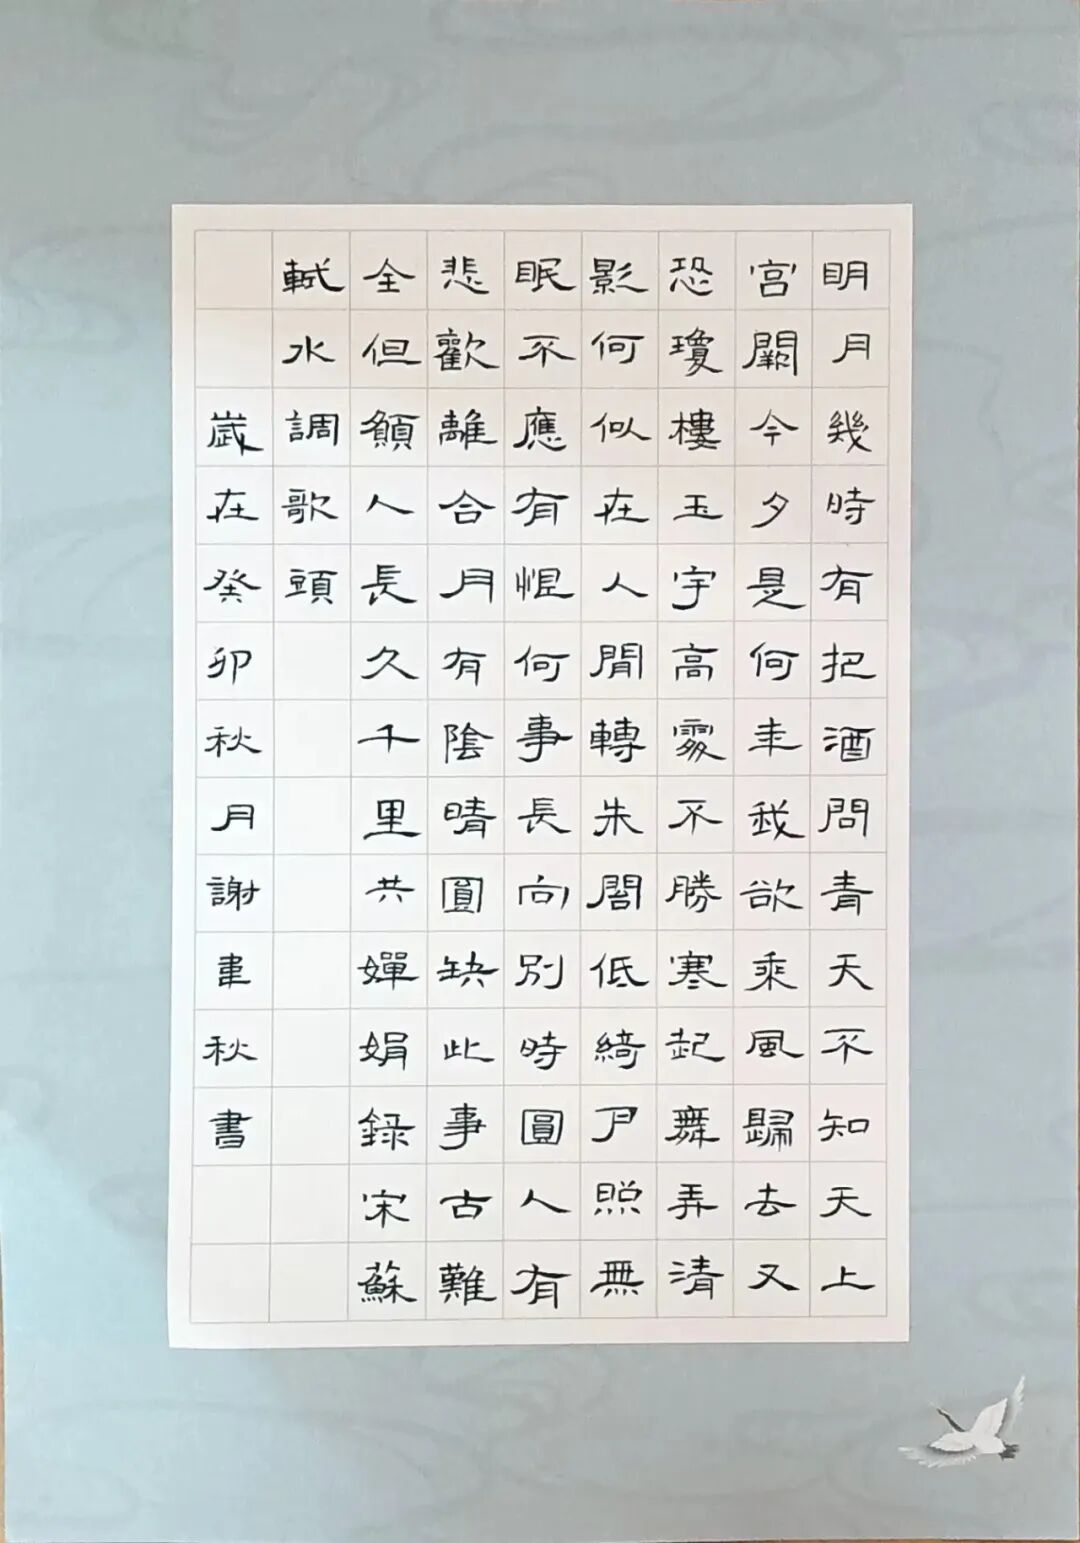 明月幾時有把酒問青天不知天上
宮闕今夕是何年我欲乘風歸去又
恐瓊樓玉宇高處不勝寒起舞弄清
影何似在人間轉朱閣低綺戶照無
眠不應有恨何事長向別時圓人有
悲歡離合月有陰晴圓缺此事古難
全但願人長久千里共嬋娟錄宋蘇
軾水調歌頭
歲在癸卯秋月謝聿秋書